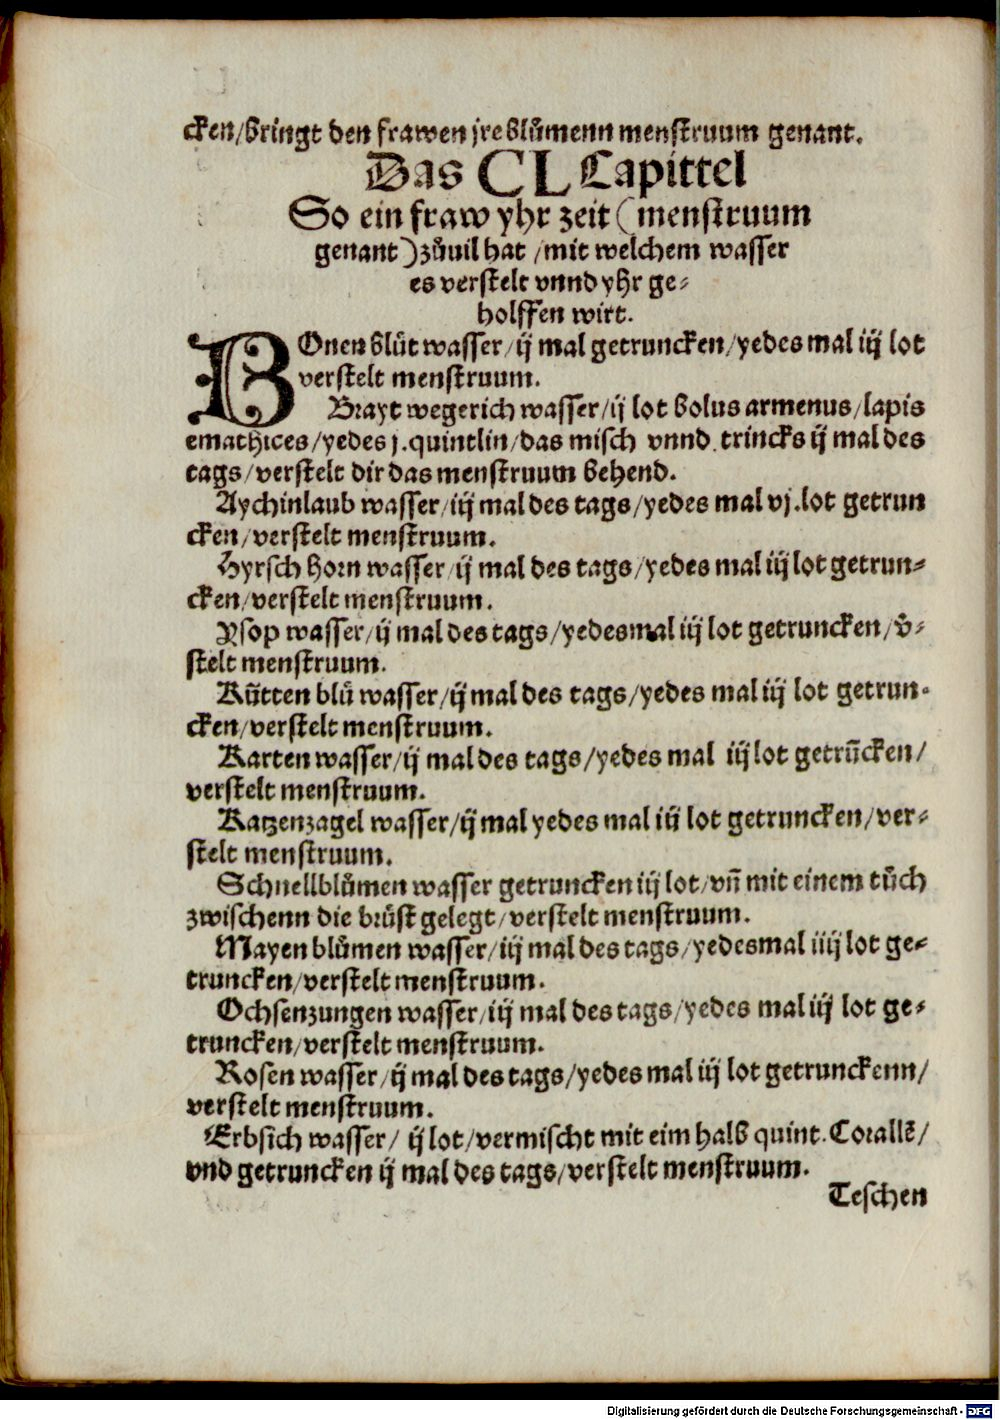 cken/bringt den frawen jre blůmenn menstruum genant.
Das CL Capittel
So ein fraw yhr zeit (menstruum
genant) zůuil hat /mit welchem wasser
es verstelt vnnd yhr ge⸗
holffen wirt.
BOnen blůt wasser/ij mal getruncken/yedes mal iij lot
verstelt menstruum.
Brayt wegerich wasser/ij lot bolus armenus/lapis
emathices/yedes j.quintlin/das misch vnnd trincks ij mal des
tags/verstelt dir das menstruum behend.
Aychinlaub wasser/iij mal des tags/yedes mal vj.lot getrun
cken/verstelt menstruum.
Hyrsch horn wasser/ij mal des tags/yedes mal iij lot getrun⸗
cken/verstelt menstruum.
Ysop wasser/ij mal des tags/yedesmal iij lot getruncken/v̊⸗
stelt menstruum.
Kütten blů wasser/ij mal des tags/yedes mal iij lot getrun⸗
cken/verstelt menstruum.
Karten wasser/ij mal des tags/yedes mal iij lot getrūcken/
verstelt menstruum.
Katzenzagel wasser/ij mal yedes mal iij lot getruncken/ver⸗
stelt menstruum.
Schnellblůmen wasser getruncken iij lot/vñ mit einem tůch
zwischenn die brüst gelegt/verstelt menstruum.
Mayen blůmen wasser/iij mal des tags/yedesmal iiij lot ge⸗
truncken/verstelt menstruum.
Ochsenzungen wasser/iij mal des tags/yedes mal iij lot ge⸗
truncken/verstelt menstruum.
Rosen wasser/ij mal des tags/yedes mal iij lot getrunckenn/
verstelt menstruum.
Erbsich wasser/ ij lot/vermischt mit eim halb quint.Corallē/
vnd getruncken ij mal des tags/verstelt menstruum.
Teschen
Digitalisierung gefördert durch die Deutsche Forschungsgemeinschaft - DFG